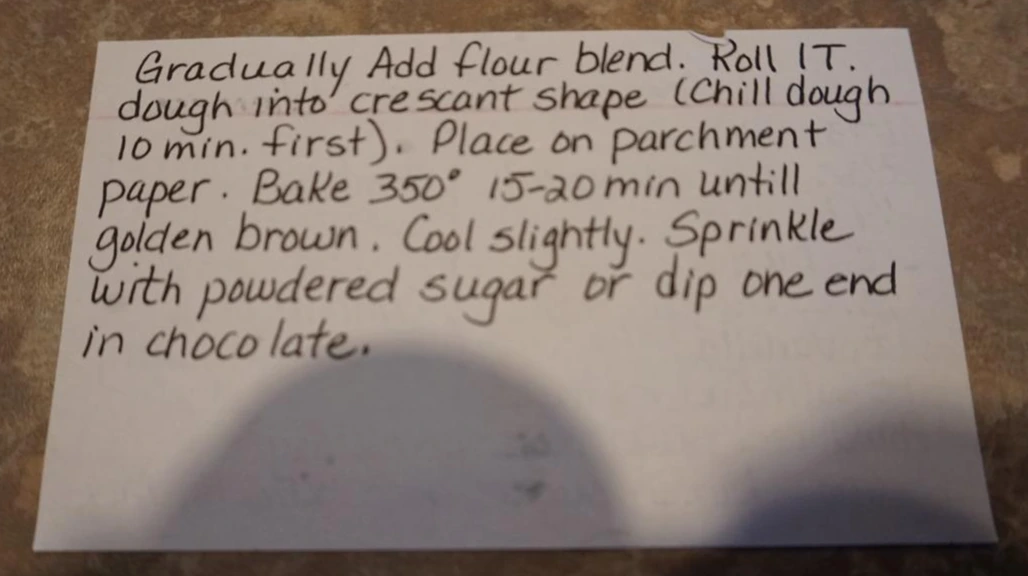 Gradually Add flour blend. Roll 1T.
dough into crescant shape (Chill dough
10 min. first). Place on parchment
paper. Bake 350° 15-20 min untill
golden brown. Cool slightly. Sprinkle
with powdered sugar or dip one end
in chocolate.